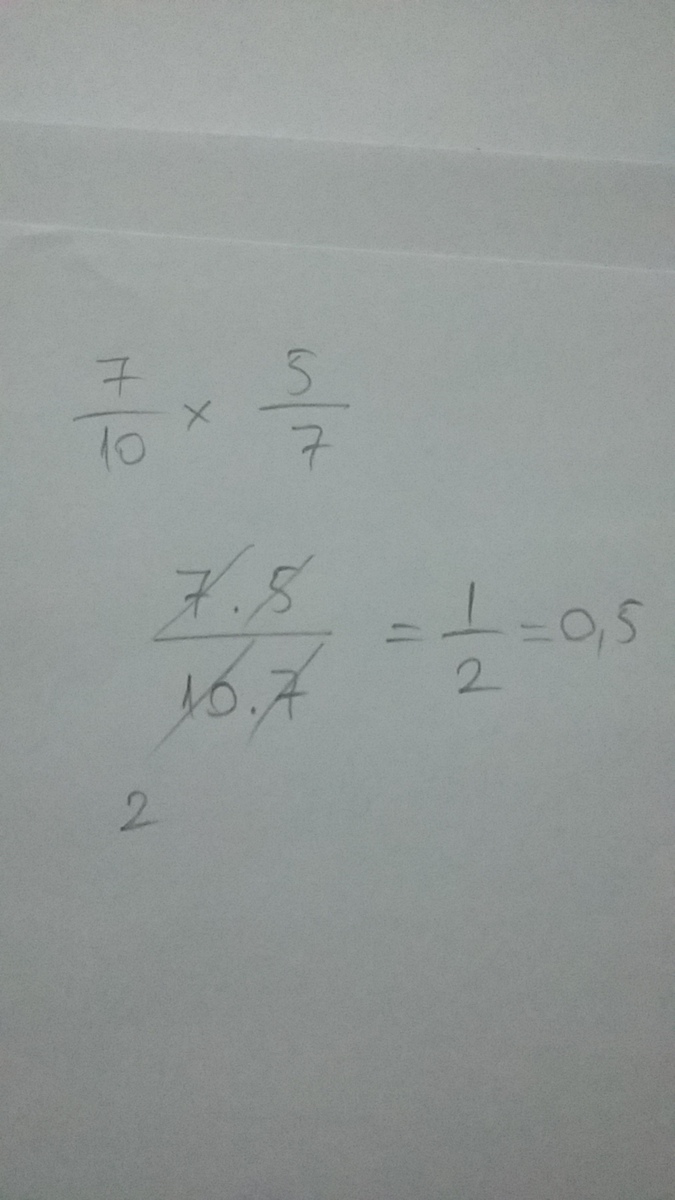 7/10 × 5/7
7.5/10.7 = 1/2 = 0,5
2